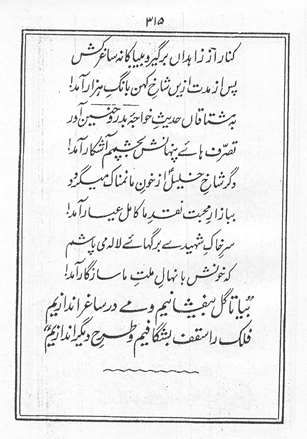 ۳۱۵
کنار از زاہداں برگیر و بیباکانہ ساغر کش
پس از مدت ازیں شاخِ کہن بانگِ ہزار آمد!
بہ مشتاقاں حدیثِ خواجۂ بدر و حنین آور
تصرّف ہائے پنہانش بچشمم آشکار آمد!
دگر شاخِ خلیلؑ از خونِ ما نمناک میگردد
ببازارِ محبت نقدِ ما کامل عیار آمد!
سرِ خاکِ شہیدے برگہائے لالہ می پاشم
کہ خونش با نہالِ ملتِ ما سازگار آمد!
”بیا تا گل بیفشانیم و مے در ساغر اندازیم
فلک را سقف بشگافیم و طرحِ دیگر اندازیم“